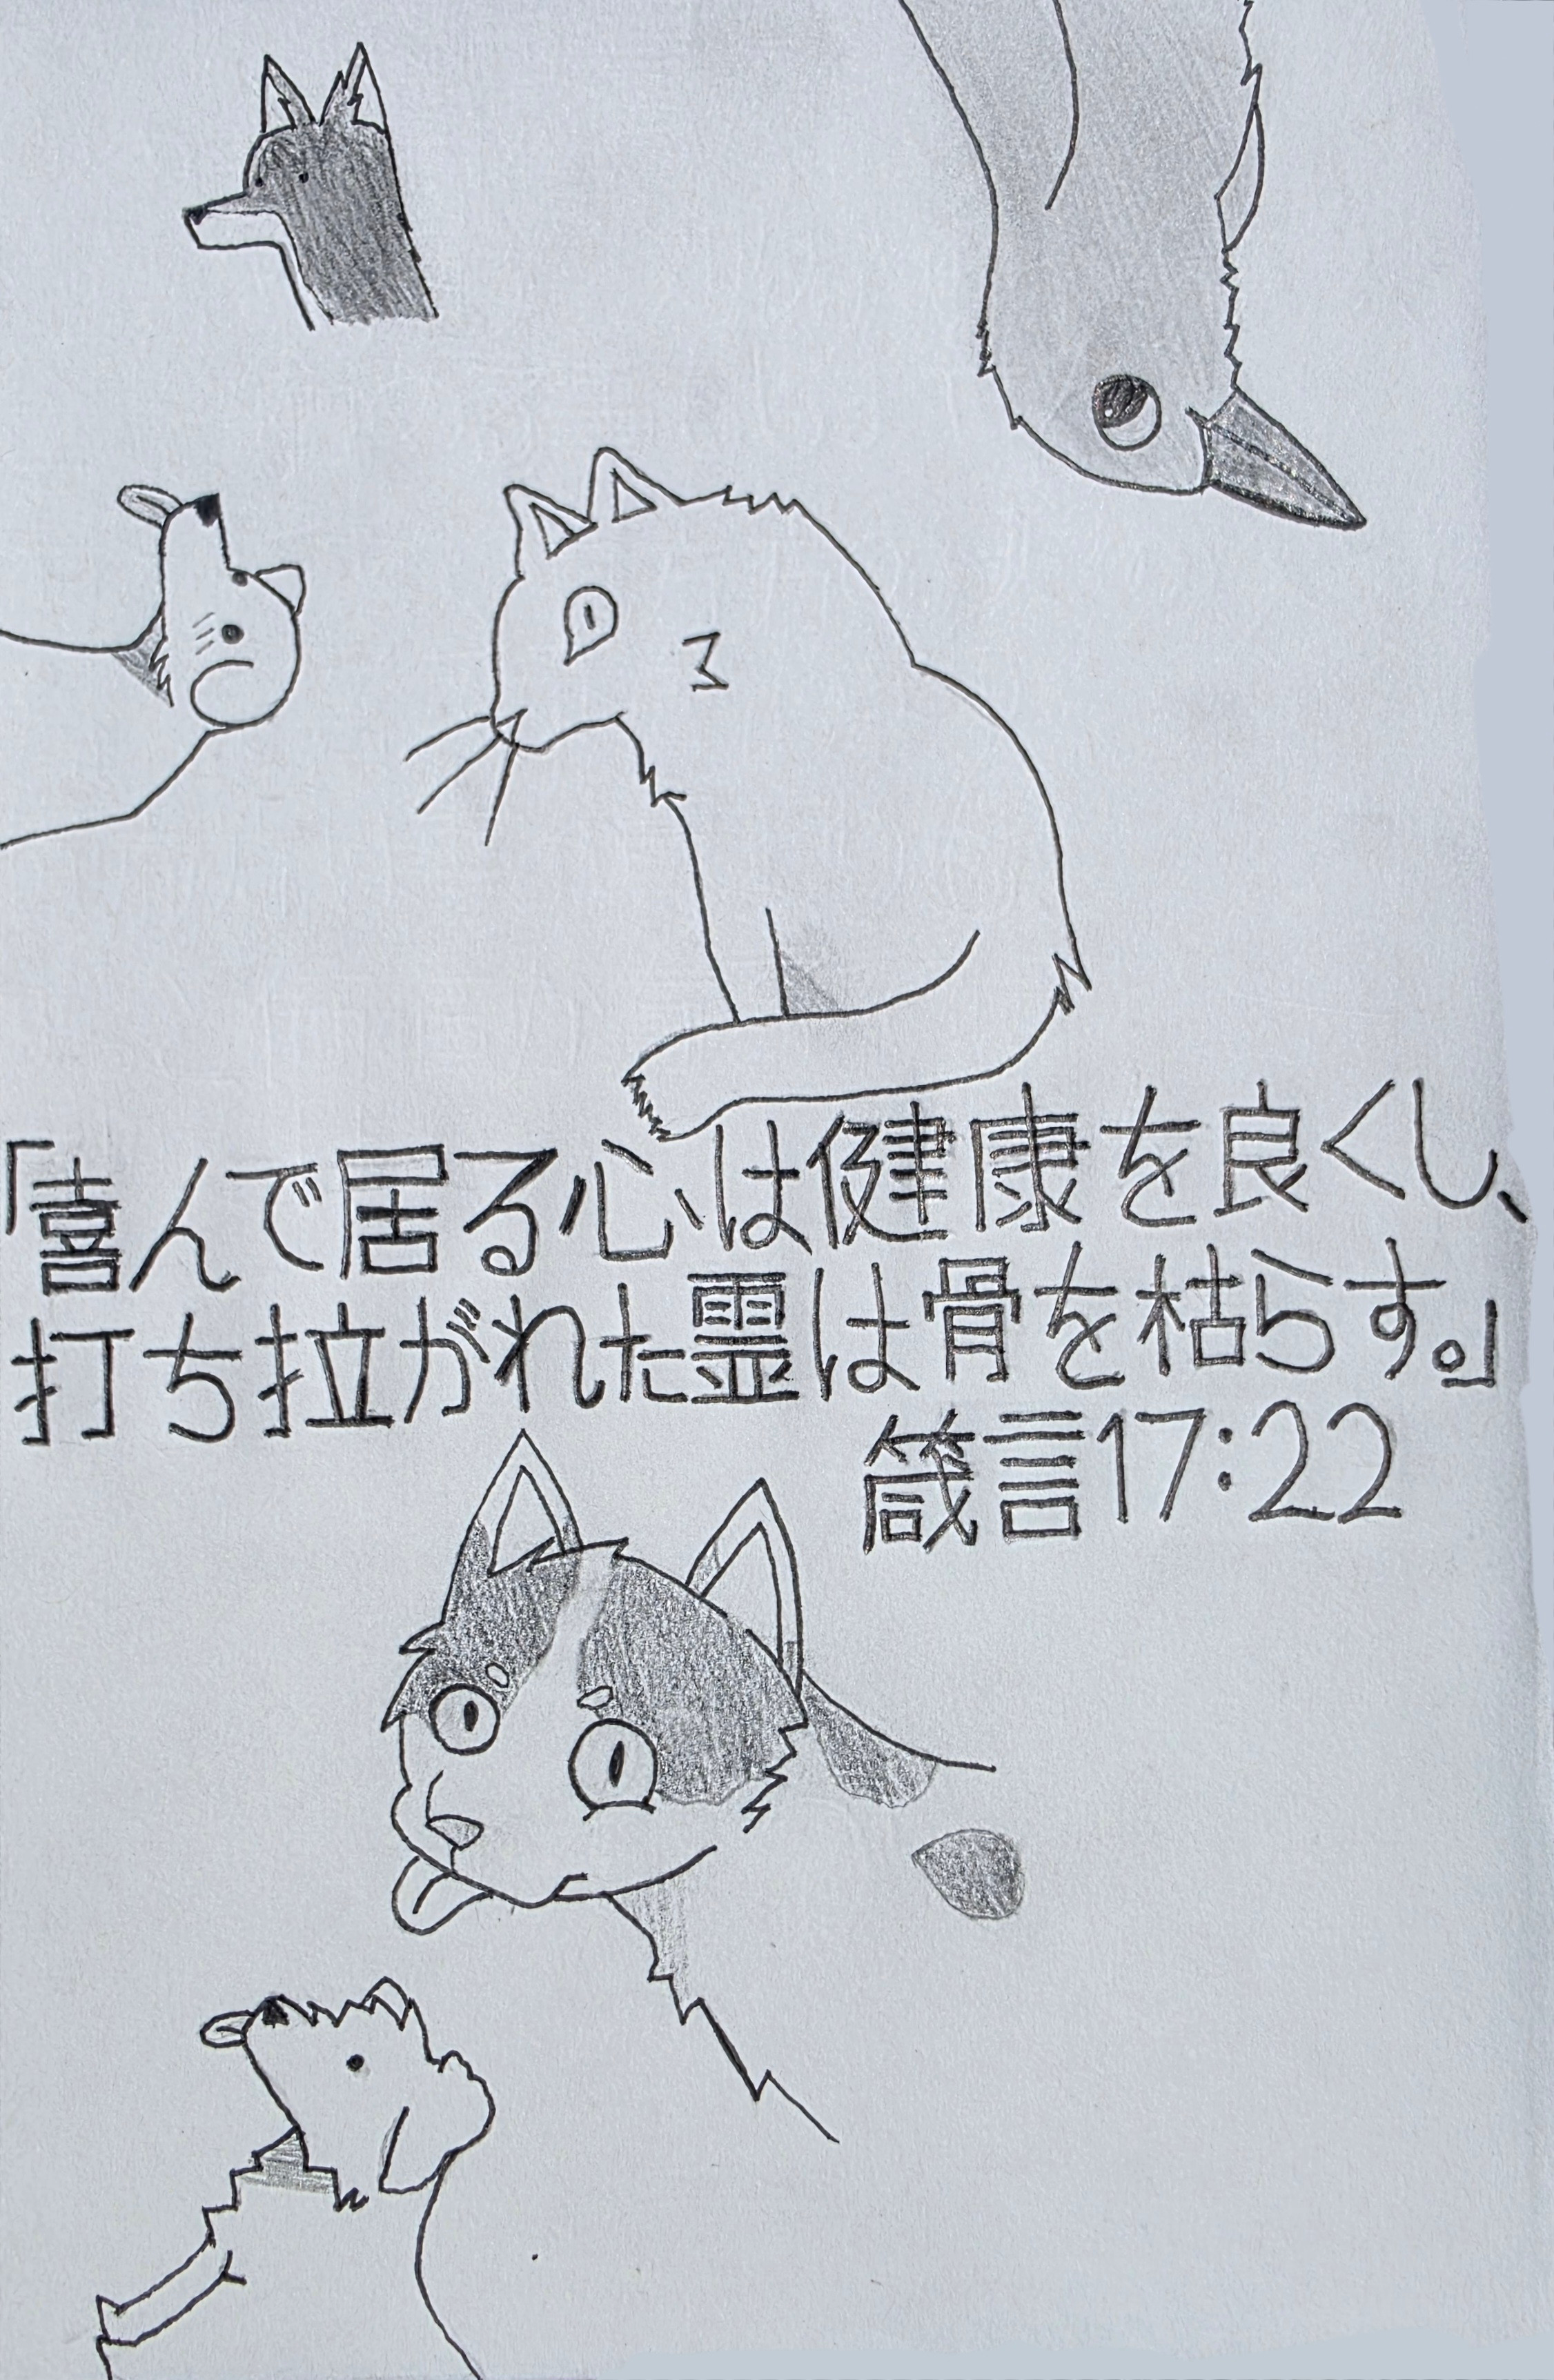 「喜んで居る心は健康を良くし、
打ち拉がれた霊は骨を枯らす。」
箴言17:22